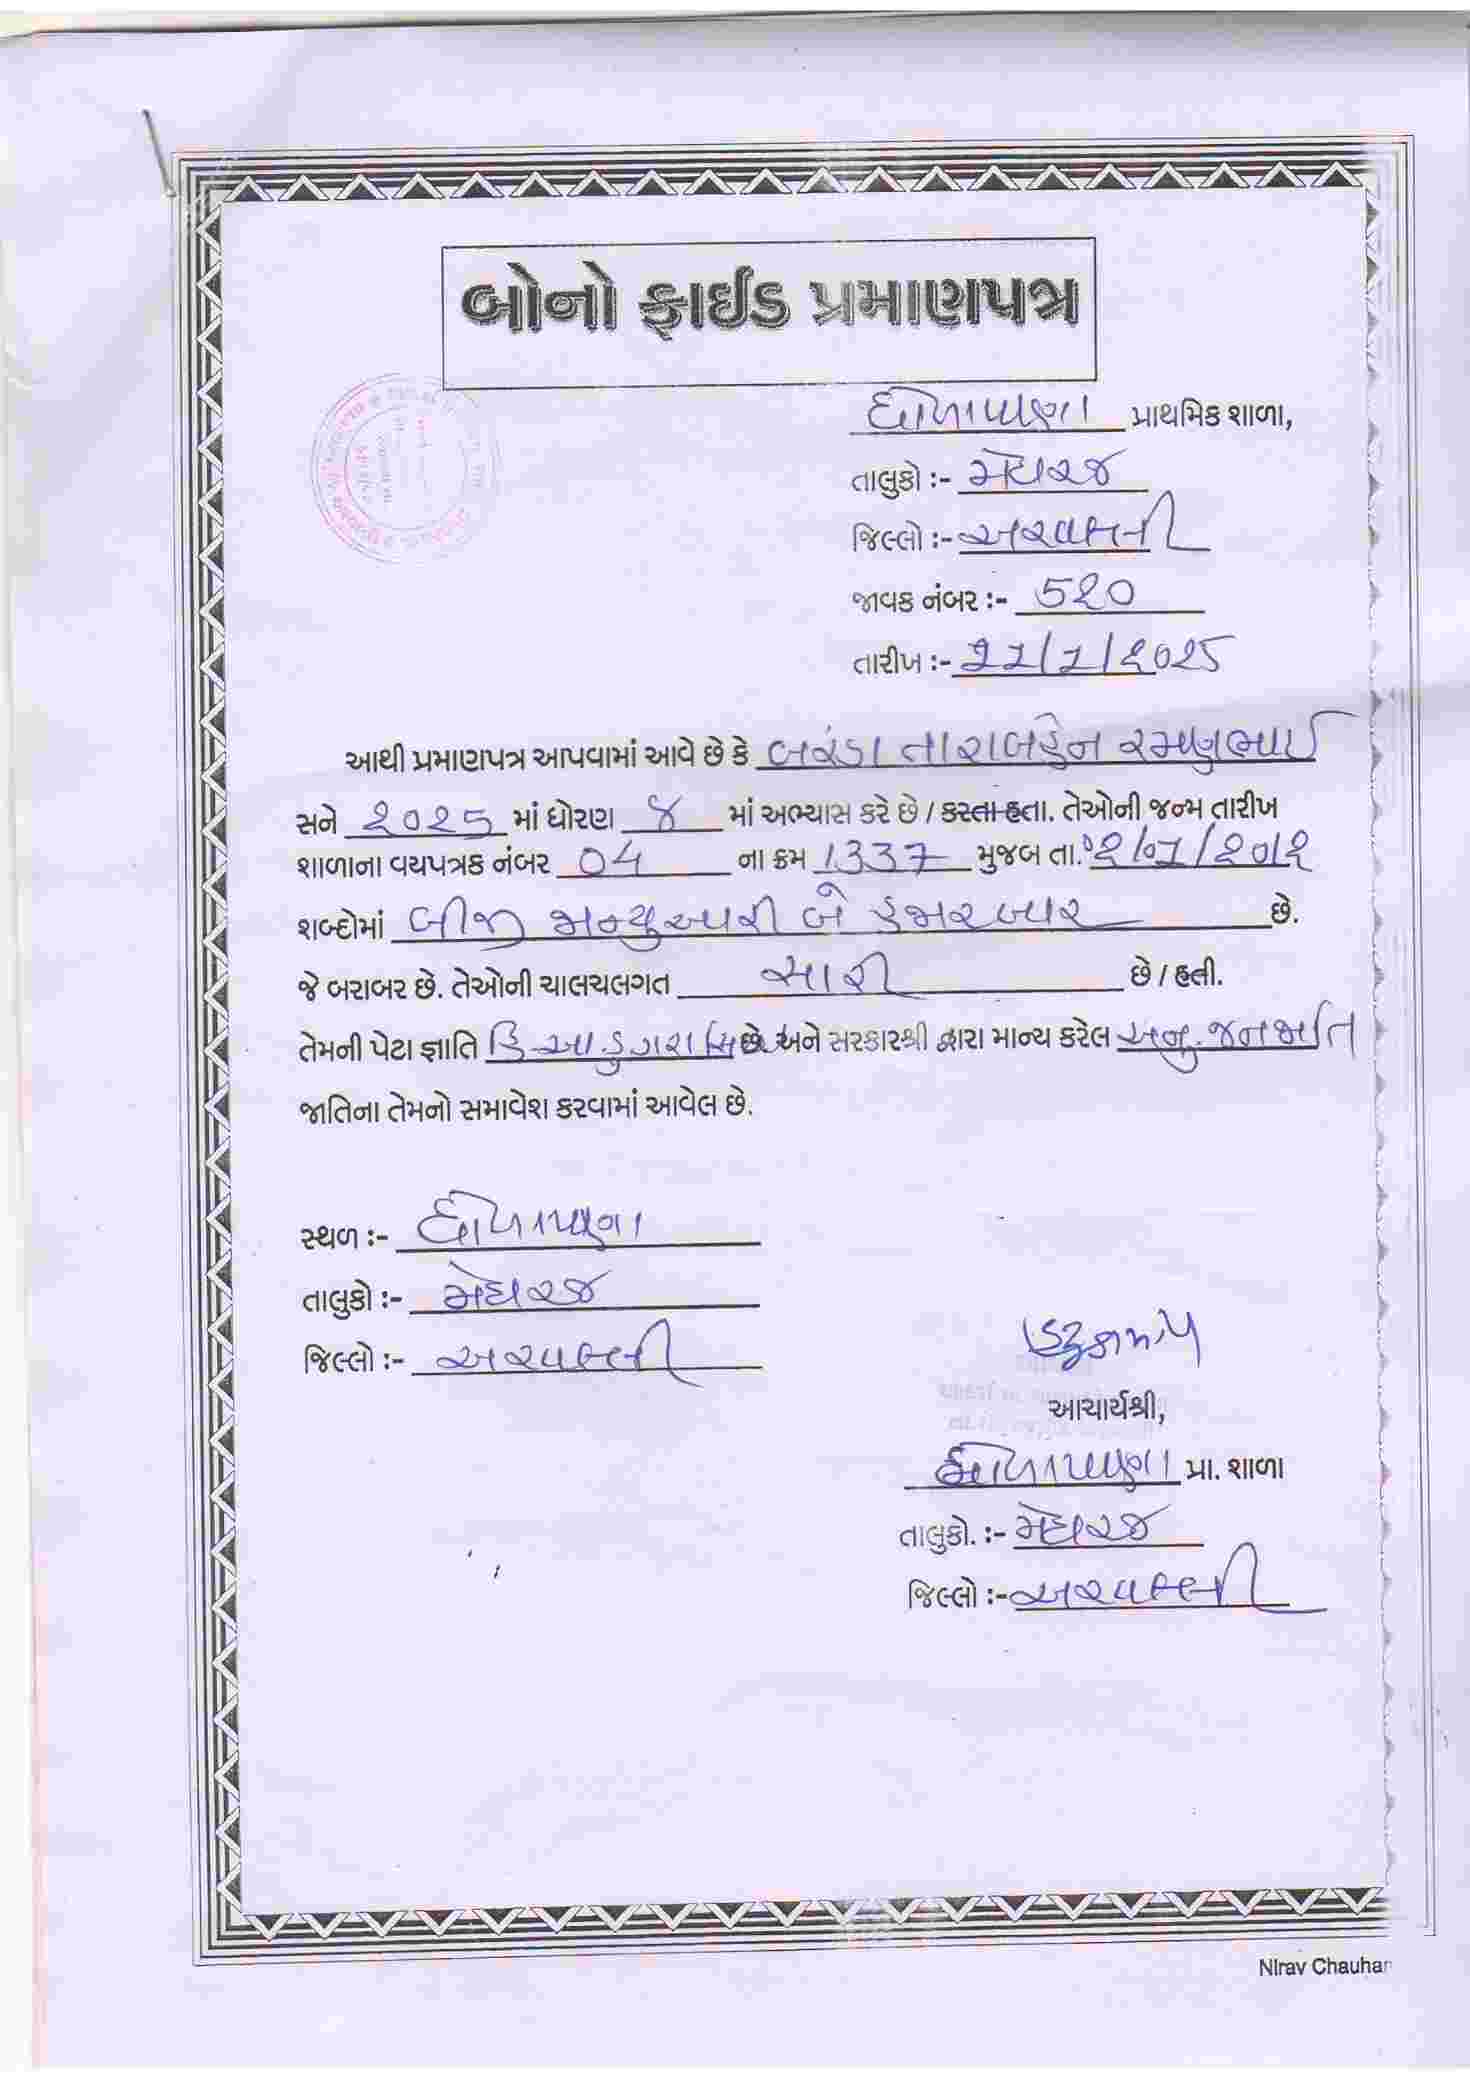 બોનો ફાઈડ પ્રમાણપત્ર
ધોળાપાણા પ્રાથમિક શાળા,
તાલુકો :- મેઘરજ
જિલ્લો :- અરવલ્લી
જાવક નંબર :- 520
તારીખ :- 22/7/2025
આથી પ્રમાણપત્ર આપવામાં આવે છે કે બરંડા તારાબહેન રમણભાઈ
સને 2025 માં ધોરણ ૪ માં અભ્યાસ કરે છે / કરતા હતા. તેઓની જન્મ તારીખ
શાળાના વયપત્રક નંબર 04 ના ક્રમ 1337 મુજબ તા. ૦૨/૦૧/૨૦૧૨
શબ્દોમાં બીજી જાન્યુઆરી બે હજારબાર છે.
જે બરાબર છે. તેઓની ચાલચલગત સારી છે / હતી.
તેમની પેટા જ્ઞાતિ ડુંગરી છે. અને સરકારશ્રી દ્વારા માન્ય કરેલ અનુ. જનજાતિ
જાતિના તેમનો સમાવેશ કરવામાં આવેલ છે.
સ્થળ :- ધોળાપાણા
તાલુકો :- મેઘરજ
જિલ્લો :- અરવલ્લી
આચાર્યશ્રી,
ધોળાપાણા પ્રા. શાળા
તાલુકો. :- મેઘરજ
જિલ્લો :- અરવલ્લી
Nirav Chauhan